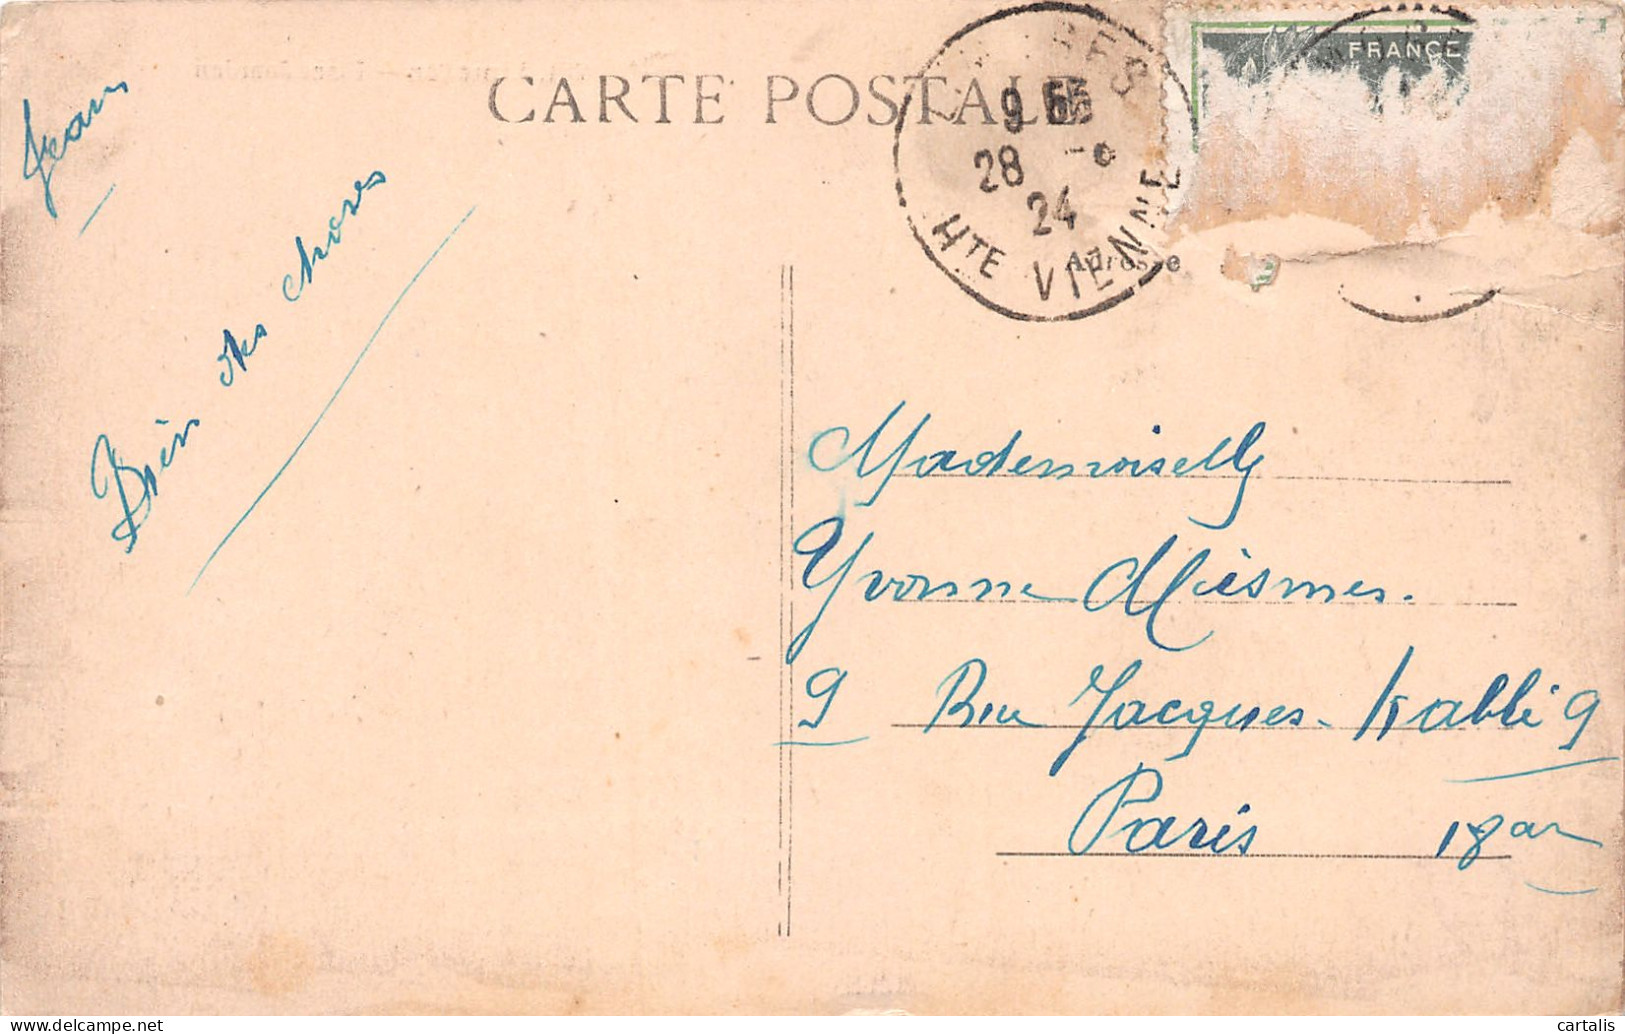 CARTE POSTALE
FRANCE
9
28 -8
24
HTE VIENNE
Adresse
Jean
Bien des choses
Mademoiselle
Yvonne
9 Rue Jacques-Kablé 9
Paris 18
delcampe.net
cartalis